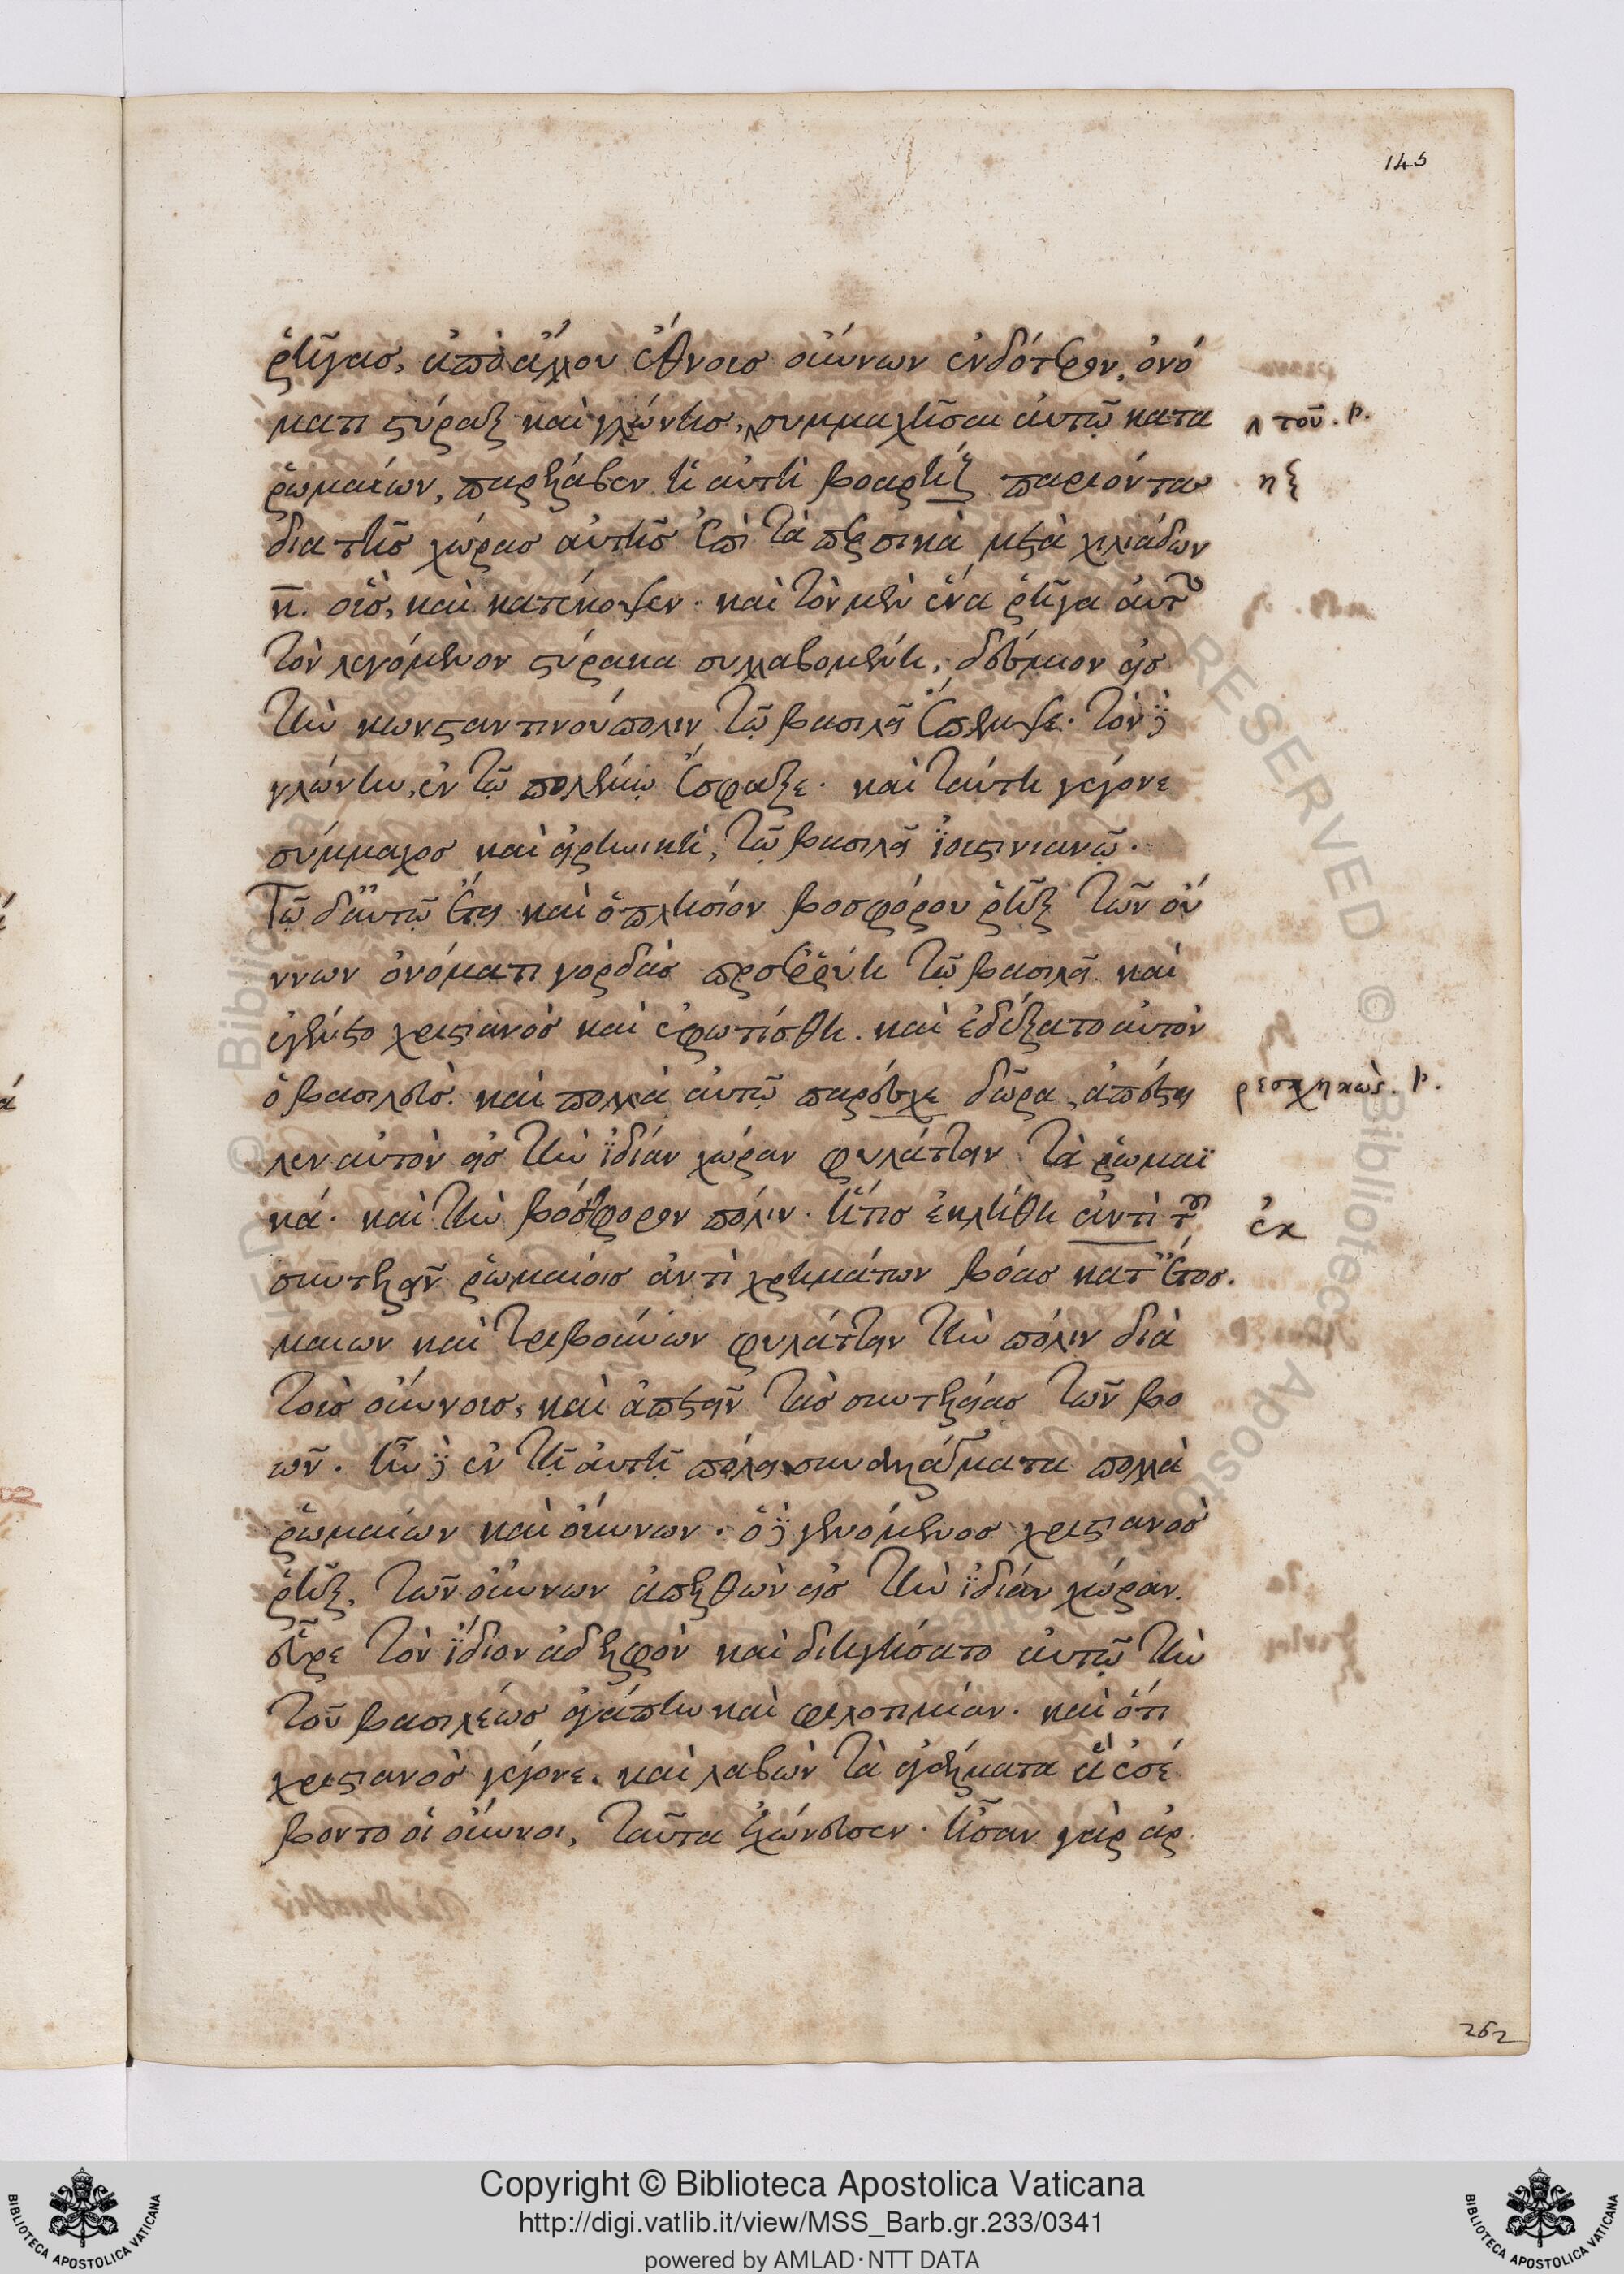 145
ῥῆγας, ἀπὸ ἄλλου ἔθνους οὕννων ἐνδότερον, ὀνό
ματι στύραξ καὶ γλώνης, συμμαχῆσαι αὐτῷ κατα
ῥωμαίων, παρέλαβεν ἡ αὐτὴ βοαρὴξ παριόντας
δια τῆς χώρας αὐτῆς ἐπὶ τὰ περσικὰ μετὰ χιλιάδων
κ. οὓς, καὶ κατέκοψεν. καὶ τὸν μὲν ἕνα ῥῆγα αὐτῶν
τὸν λεγόμενον στύρακα συλλαβομένη, δέσμιον εἰς
τὴν κωνσταντινούπολιν τῷ βασιλεῖ ἔπεμψε. τὸν δὲ
γλώνην, ἐν τῷ πολέμῳ ἔσφαξε. καὶ ταύτη γέγονε
σύμμαχος καὶ εἰρηνικὴ, τῷ βασιλεῖ ϊουστινιανῷ.
Τῷ δ' αὐτῷ ἔτει καὶ ὁ πλησίον βοσφόρου ῥῆξ τῶν οὕ
ννων ὀνόματι γορδὰς προσερρύη τῷ βασιλεῖ. καὶ
ἐγένετο χριστιανὸς καὶ ἐφωτίσθη. καὶ ἐδέξατο αὐτὸν
ὁ βασιλεὺς. καὶ πολλὰ αὐτῷ παρέσχε δῶρα, ἀπέστει
λεν αὐτὸν εἰς τὴν ϊδίαν χώραν φυλάττειν τὰ ῥωμαϊ
κά. καὶ τὴν βόσφορον πόλιν. ἥτις ἐκλήθη ἀντὶ τοῦ
συντελεῖν ῥωμαίοις ἀντὶ χρημάτων βόας κατ' ἔτος.
μαιων καὶ τριβούνων φυλάττειν τὴν πόλιν διὰ
τοὺς οὕννους, καὶ ἀπαιτεῖν τὰς συντελείας τῶν βο
ῶν. ἦν δὲ ἐν τῇ αὐτῇ πόλει συναλλάγματα πολλὰ
ῥωμαίων καὶ οὕννων. ὁ δὲ γενόμενος χριστιανὸς
ῥῆξ, τῶν οὕννων ἀπελθὼν εἰς τὴν ϊδίαν χώραν.
εὗρε τὸν ἴδιον ἀδελφὸν καὶ διηγήσατο αὐτῷ τὴν
τοῦ βασιλέως ἀγάπην καὶ φιλοτιμίαν. καὶ ὅτι
χριστιανὸς γέγονε. καὶ λαβὼν τὰ ἀγάλματα ἃ ἐσέ
βοντο οἱ οὕννοι, ταῦτα ἐχώνευσεν. ἦσαν γὰρ ἀρ
λ τοῦ. p.
ηξ
ρεσχηκὼς. p.
ἐκ
262
Copyright © Biblioteca Apostolica Vaticana
http://digi.vatlib.it/view/MSS_Barb.gr.233/0341
powered by AMLAD·NTT DATA
BIBLIOTECA APOSTOLICA VATICANA
BIBLIOTECA APOSTOLICA VATICANA